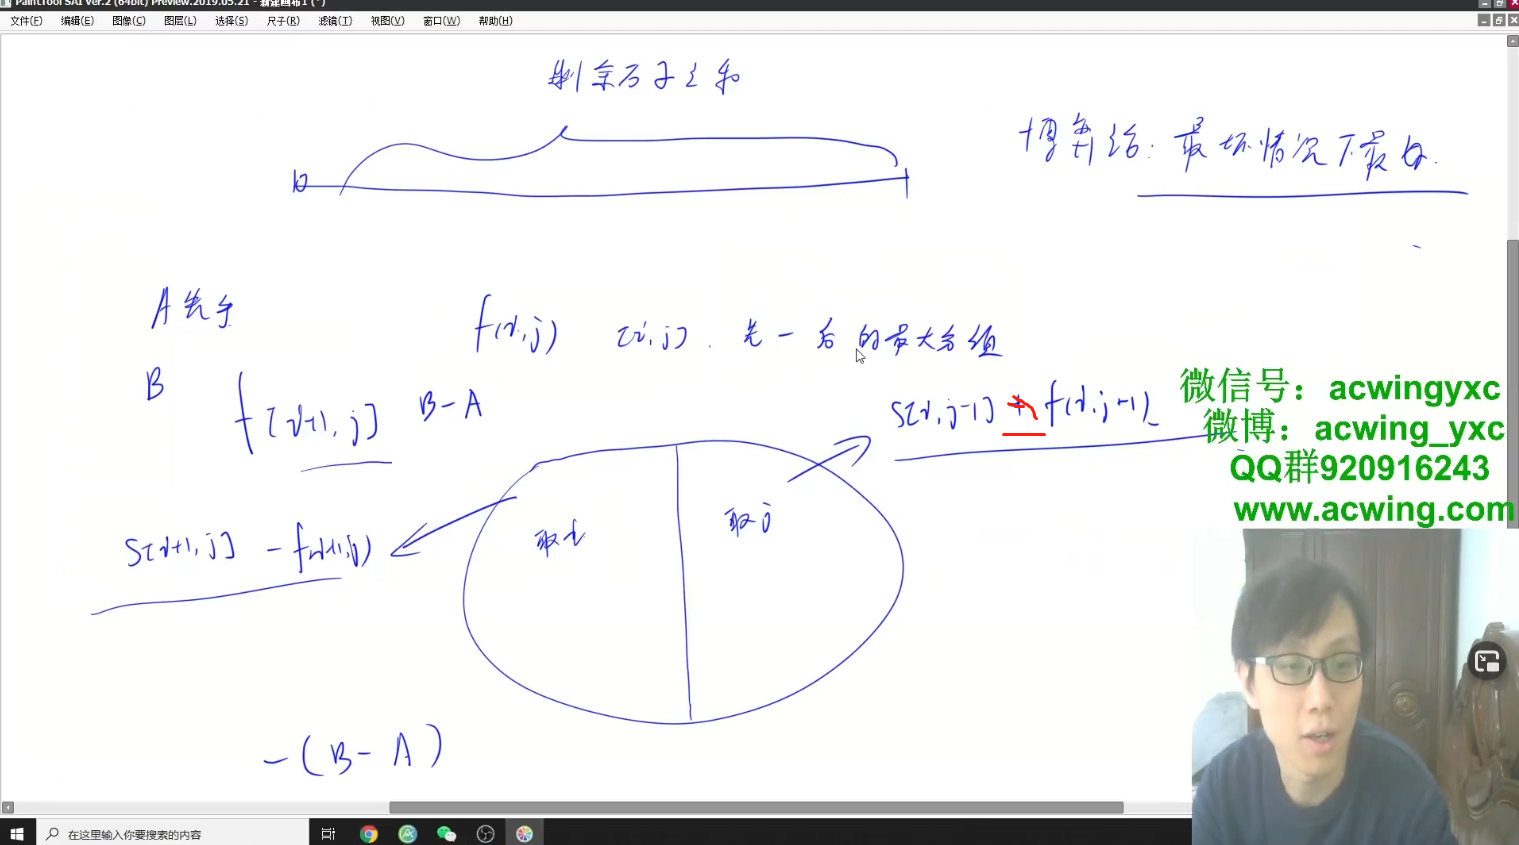 PaintTool SAI Ver.2 (64bit) Preview.2019.05.21 - 新建画布1 (*)
文件(F) 编辑(E) 图像(C) 图层(L) 选择(S) 尺子(R) 滤镜(T) 视图(V) 窗口(W) 帮助(H)
剩余石子之和
博弈论：最坏情况下最好.
A先手
f(i,j) [i,j]. 先一后的最大分值
B
f[i+1, j] B-A
S[i,j-1] f(i,j-1)
微信号：acwingyxc
微博：acwing_yxc
QQ群920916243
www.acwing.com
取i
取j
S[i+1,j] - f(i+1,j)
-(B-A)
在这里输入你要搜索的内容